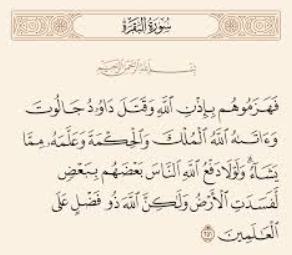 سُورَةُ البَقَرَةِ
بِسْمِ اللَّهِ الرَّحْمَٰنِ الرَّحِيمِ
فَهَزَمُوهُم بِإِذْنِ ٱللَّهِ وَقَتَلَ دَاوُۥدُ جَالُوتَ
وَءَاتَىٰهُ ٱللَّهُ ٱلْمُلْكَ وَٱلْحِكْمَةَ وَعَلَّمَهُۥ مِمَّا
يَشَآءُ ۗ وَلَوْلَا دَفْعُ ٱللَّهِ ٱلنَّاسَ بَعْضَهُم بِبَعْضٍ
لَّفَسَدَتِ ٱلْأَرْضُ وَلَٰكِنَّ ٱللَّهَ ذُو فَضْلٍ عَلَى
ٱلْعَٰلَمِينَ ٢٥١